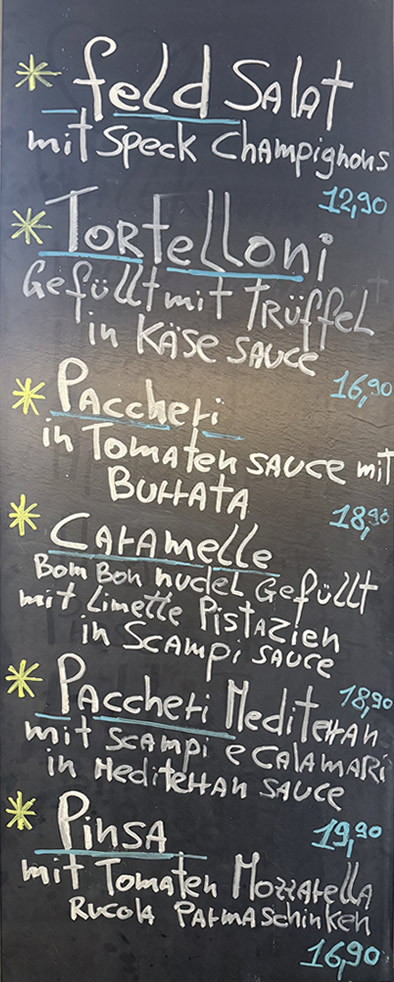 * Feld Salat
mit Speck Champignons
12,90
* Tortelloni
Gefüllt mit Trüffel
in Käse Sauce
16,90
* Paccheri
in Tomaten Sauce mit
Burrata
18,90
* Caramelle
Bom Bon nudel Gefüllt
mit Limette Pistazien
in Scampi Sauce
18,90
* Paccheri Mediterran
mit Scampi e Calamari
in Mediterran Sauce
19,90
* Pinsa
mit Tomaten Mozzarella
Rucola Parma Schinken
16,90